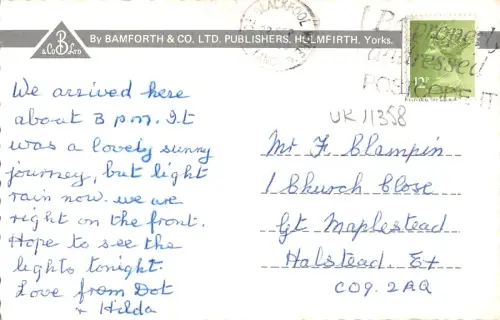 By BAMFORTH & CO. LTD. PUBLISHERS, HOLMFIRTH, Yorks.
B
& Co LTD
BLACKPOOL
Properly
addressed
POSTCODE IT
12P
UK 11358
We arrived here
about 3 pm. It
was a lovely sunny
journey, but light
rain now. we are
right on the front.
Hope to see the
lights tonight.
Love from Dot
+ Hilda
Mr F. Clampin
1 Church Close
Gt Maplestead
Halstead. Ex
CO9. 2AQ